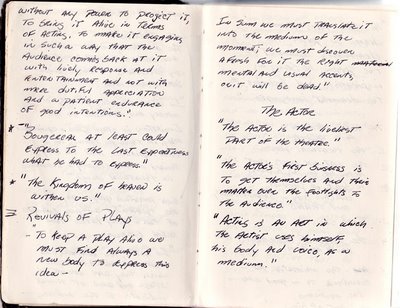 without any power to project it,
to bring it alive in terms
of acting, to make it engaging
in such a way that the
audience comes back at it
with lively response and
entertainment and not with
mere dutiful appreciation
and a patient endurance
of good intentions."
* "Bougereau at least could
express to the last expertness
what he had to express"
* "The Kingdom of heaven is
within us."
3 Revivals of Plays
- "To keep a play alive we
must find always a
new body to express this
idea -
In sum we must translate it
into the medium of the
moment; we must discover
afresh for it the right
mental and visual accents,
or it will be dead."
The Actor
"The actor is the liveliest
part of the theatre."
"The actor's first business is
to get themselves and their
matter over the footlights to
the audience."
"Acting is an art in which
the artist uses himself,
his body and voice, as a
medium."